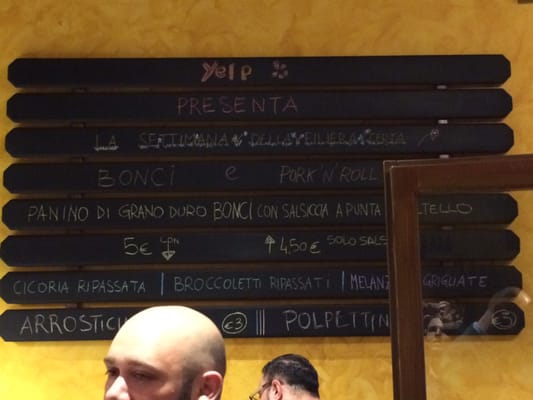 yelp
PRESENTA
LA SETTIMANA DELLA FILIERA CERTA
BONCI e PORK 'N' ROLL
PANINO DI GRANO DURO BONCI CON SALSICCIA A PUNTA TELLO
5€ 4,50€ SOLO SALS
CICORIA RIPASSATA | BROCCOLETTI RIPASSATI | MELANZ GRIGLIATE
ARROSTICI €3 ||| POLPETTIN €3